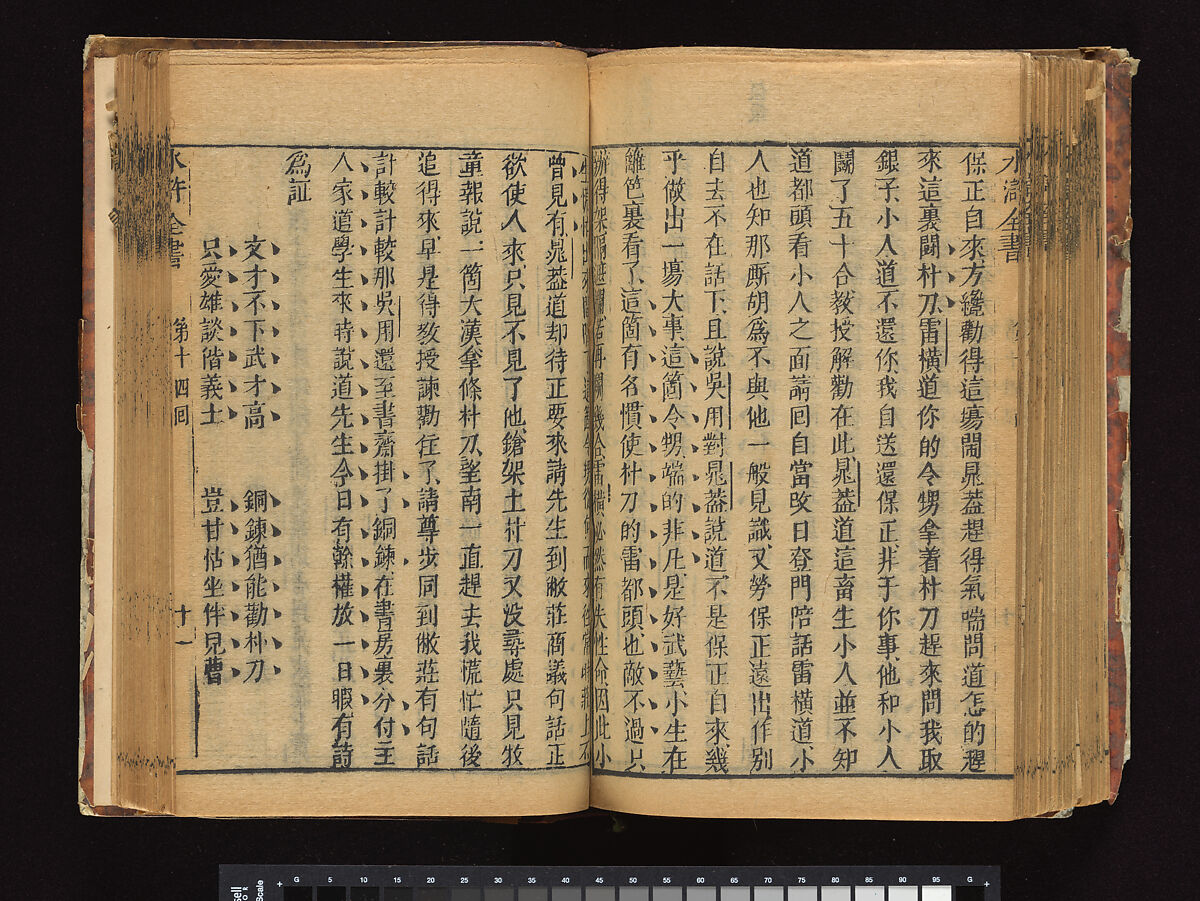 水滸全書
保正自來方纔勸得這塲閙晁葢趕得氣喘問道怎的趕
來這裏閗朴刀雷橫道你的令甥拿着朴刀趕來問我取
銀子小人道不還你我自送還保正非干你事他和小人
鬬了五十合教授解勸在此晁葢道這畜生小人並不知
道都頭看小人之面請回自當改日登門陪話雷橫道小
人也知那厮胡爲不與他一般見識又勞保正遠出作別
自去不在話下且說吳用對晁葢說道不是保正自來幾
乎做出一塲大事這箇令甥端的非凡是好武藝小生在
籬笆裏看了這箇有名慣使朴刀的雷都頭也敵不過只
辦得架隔遮攔若再鬬幾合雷橫必然有失性命因此小
曾見有晁葢道却待正要來請先生到敝莊商議句話正
欲使人來只見不見了他鎗架上朴刀又没尋處只見牧
童報說一箇大漢拿條朴刀望南一直趕去我慌忙隨後
追得來早是得敎授諫勸住了請尊步同到敝莊有句話
計較計較那吳用還至書齋掛了銅鍊在書房裏分付主
人家道學生來時說道先生今日有幹權放一日暇有詩
爲証
文才不下武才高 銅鍊猶能勸朴刀
只愛雄談偕義士 豈甘怙坐伴兒曹
水滸全書 第十四回 十一